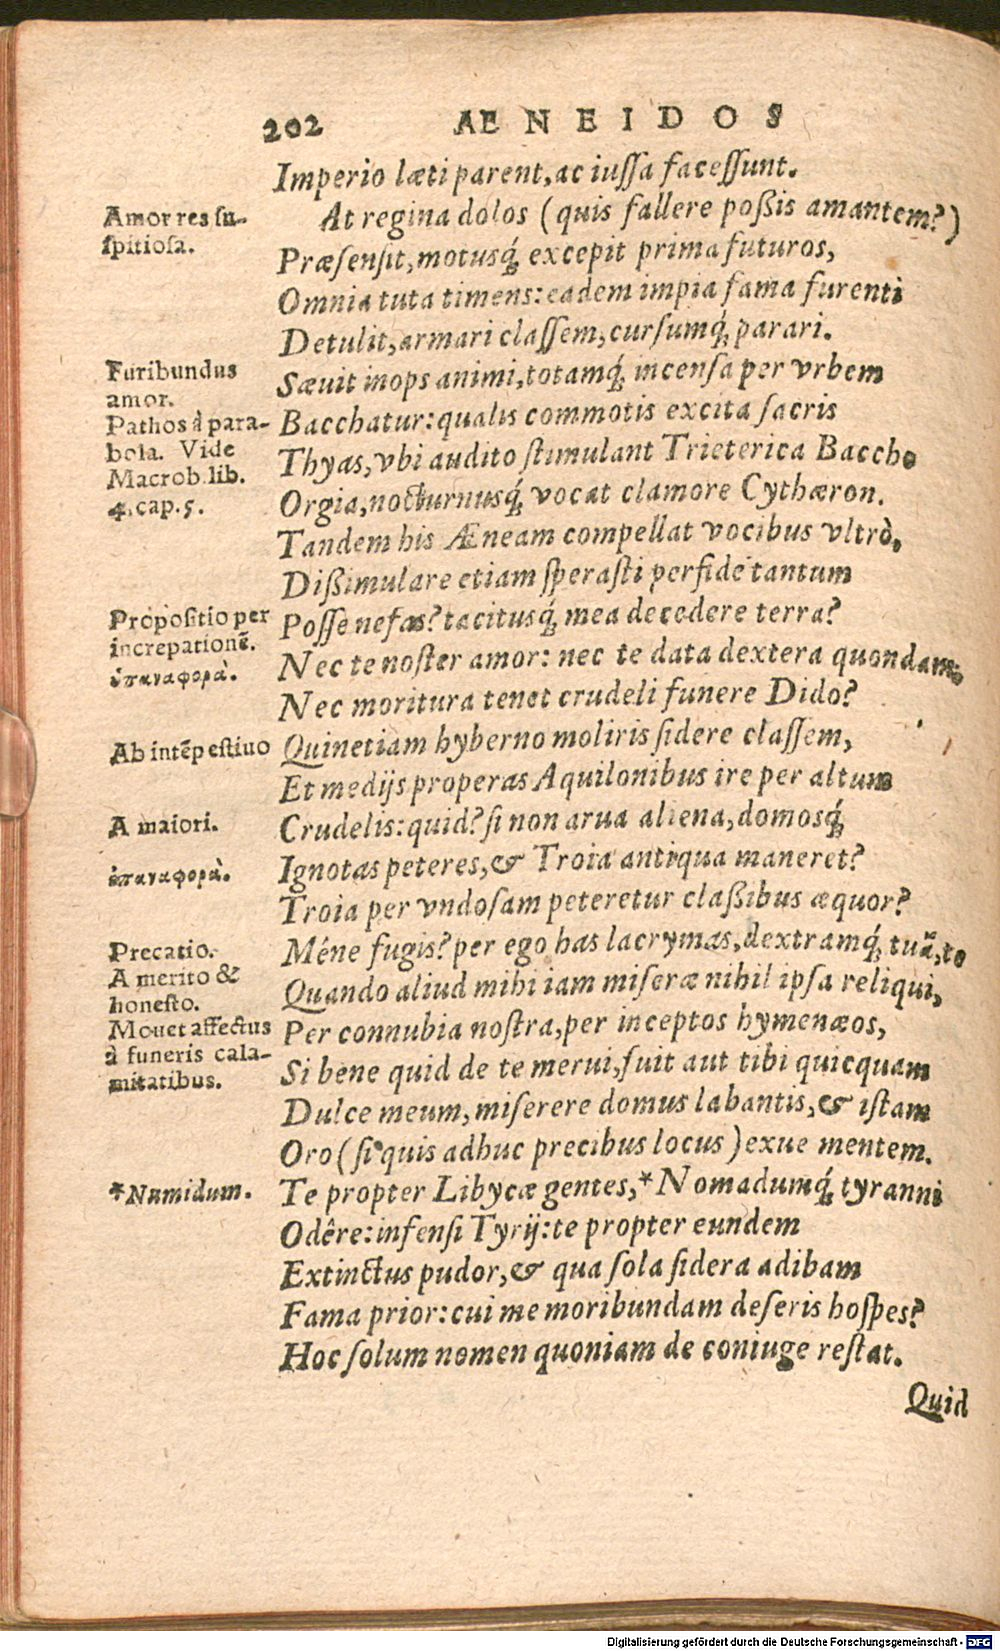 202 AENEIDOS
Imperio læti parent, ac iussa facessunt.
Amor res su-
spitiosa.
At regina dolos (quis fallere poßis amantem?)
Præsensit, motusq́; excepit prima futuros,
Omnia tuta timens: eadem impia fama furenti
Detulit, armari classem, cursumq́; parari.
Furibundus
amor.
Pathos à para-
bola. Vide
Macrob. lib.
4. cap. 5.
Sæuit inops animi, totamq́; incensa per vrbem
Bacchatur: qualis commotis excita sacris
Thyas, vbi audito stimulant Trieterica Baccho
Orgia, nocturnusq́; vocat clamore Cythæron.
Tandem his Æneam compellat vocibus vltrò,
Dißimulare etiam sperasti perfide tantum
Propositio per
increpationẽ.
ἐπαναφορὰ.
Posse nefas? tacitusq́; mea decedere terra?
Nec te noster amor: nec te data dextera quondam,
Nec moritura tenet crudeli funere Dido?
Ab intẽpestiuo
Quinetiam hyberno moliris sidere classem,
Et medijs properas Aquilonibus ire per altum
A maiori.
Crudelis: quid? si non arua aliena, domosq́;
ἐπαναφορὰ.
Ignotas peteres, & Troia antiqua maneret?
Troia per vndosam peteretur claßibus æquor?
Precatio.
A merito &
honesto.
Mouet affectus
à funeris cala-
mitatibus.
Méne fugis? per ego has lacrymas, dextramq́; tuã, te
Quando aliud mihi iam miseræ nihil ipsa reliqui,
Per connubia nostra, per inceptos hymenæos,
Si bene quid de te merui, fuit aut tibi quicquam
Dulce meum, miserere domus labantis, & istam
Oro (si quis adhuc precibus locus) exue mentem.
*Numidum.
Te propter Libycæ gentes, *Nomadumq́; tyranni
Odêre: infensi Tyrij: te propter eundem
Extinctus pudor, & qua sola sidera adibam
Fama prior: cui me moribundam deseris hospes?
Hoc solum nomen quoniam de coniuge restat.
Quid
Digitalisierung gefördert durch die Deutsche Forschungsgemeinschaft - DFG